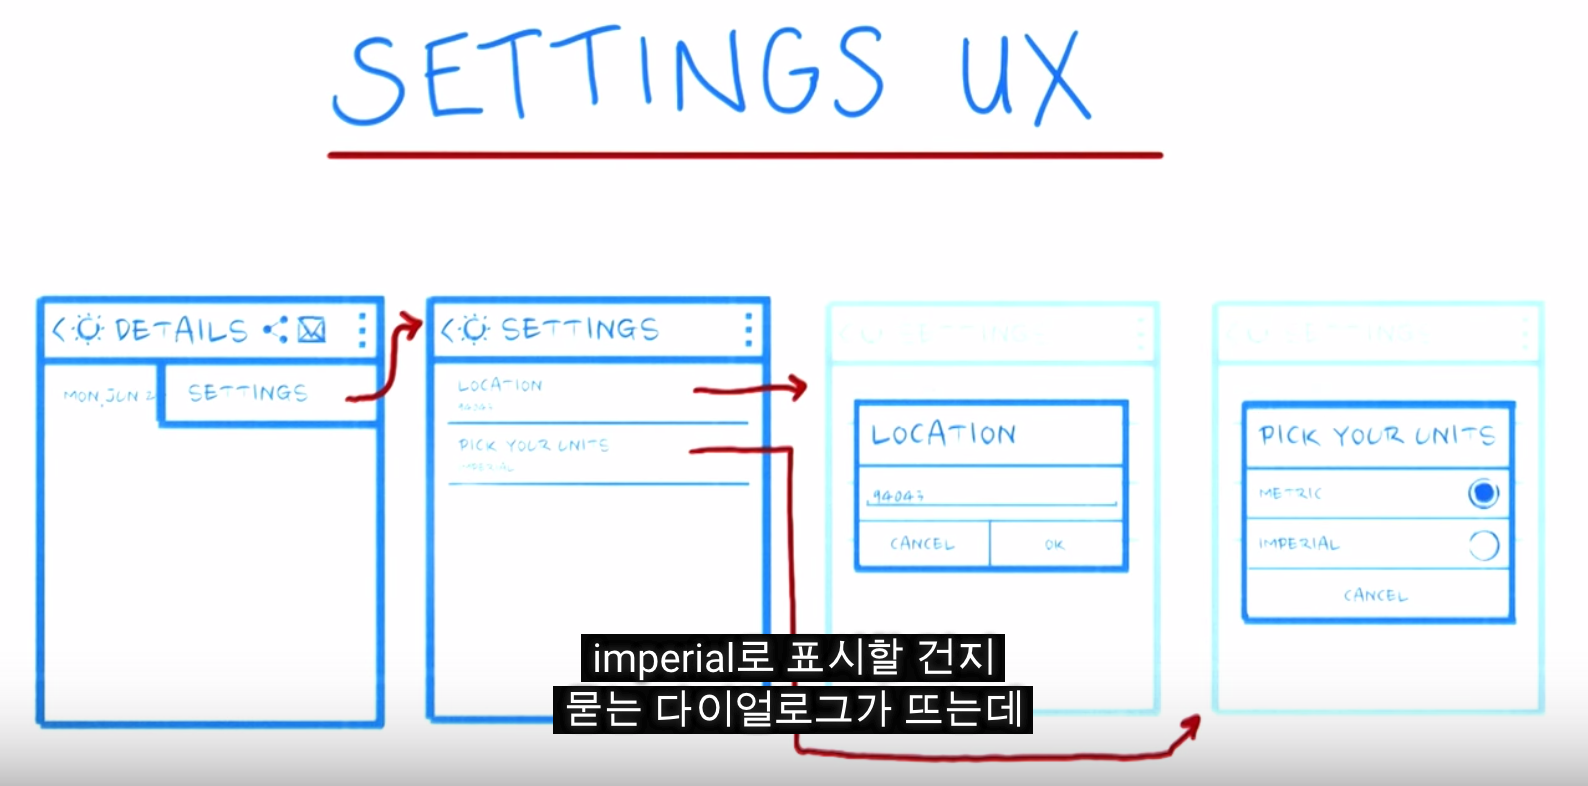 SETTINGS UX
DETAILS
MON, JUN 2
SETTINGS
SETTINGS
LOCATION
94043
PICK YOUR UNITS
IMPERIAL
SETTINGS
LOCATION
94043
CANCEL OK
SETTINGS
PICK YOUR UNITS
METRIC
IMPERIAL
CANCEL
imperial로 표시할 건지
묻는 다이얼로그가 뜨는데